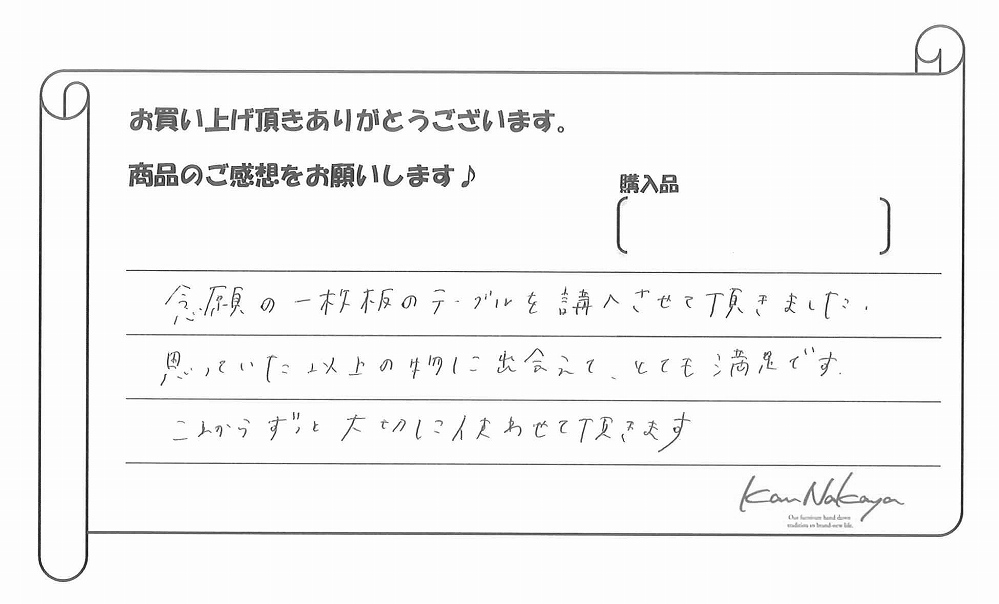 お買い上げ頂きありがとうございます。
商品のご感想をお願いします♪
購入品
念願の一枚板のテーブルを講入させて頂きました.
思っていた以上の物に出会えて、とても満足です.
これからずっと大切に使わせて頂きます
Kan Nakaya
Our furniture hand down
tradition to brand-new life.